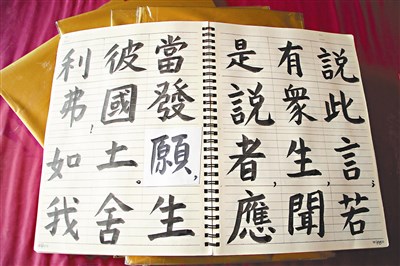 說此言;若
有眾生,聞
是說者,應
當發願,生
彼國土。舍
利弗!如我